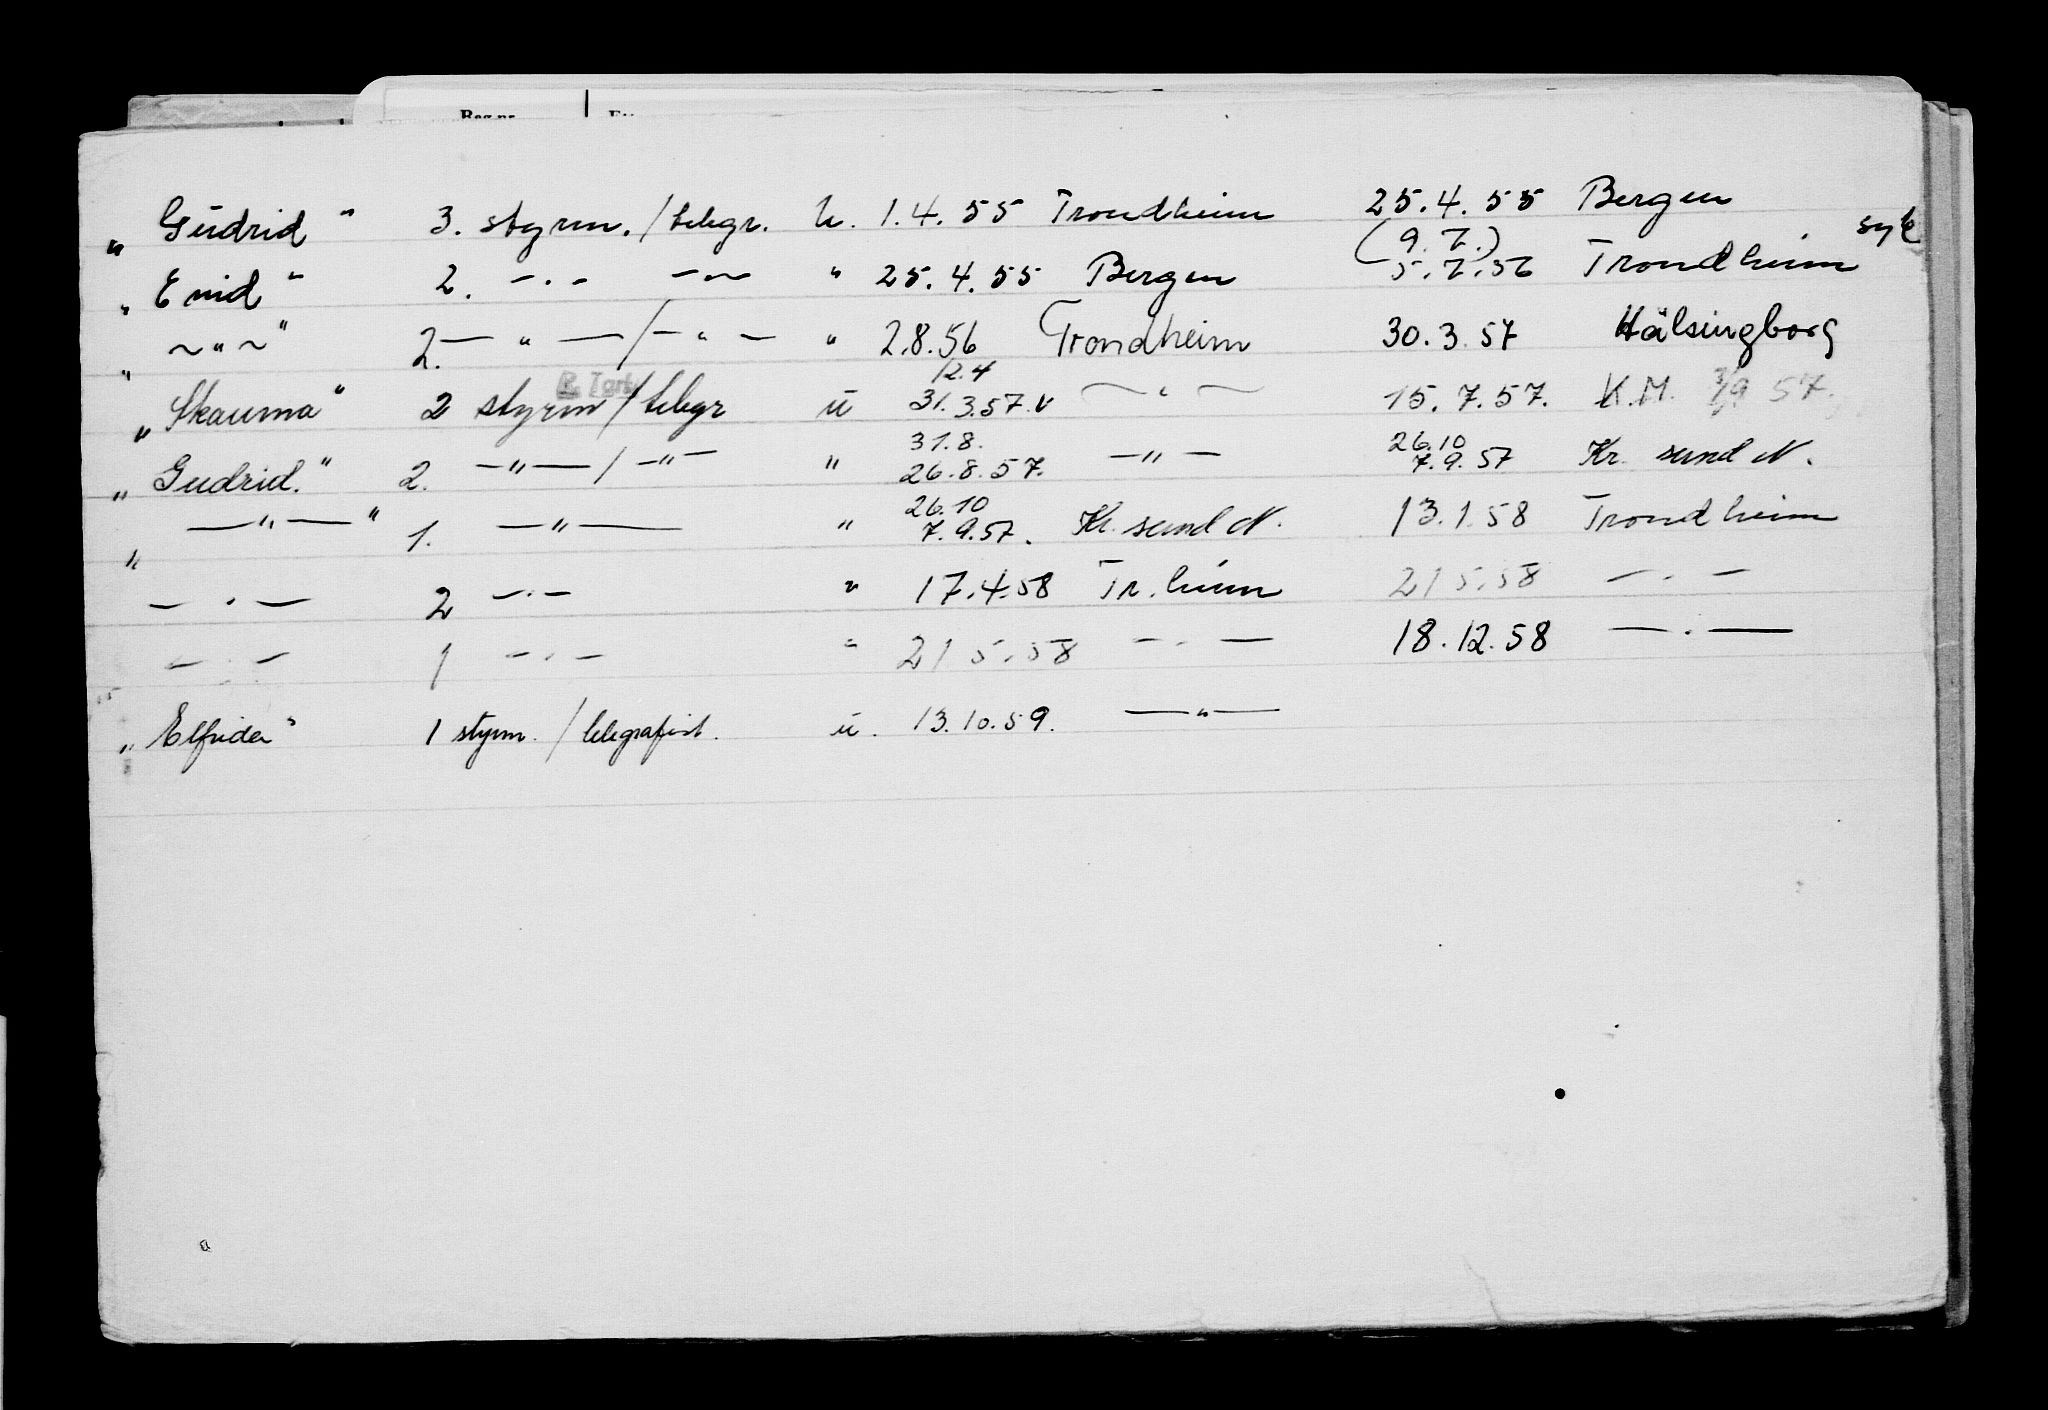 „Gudrid" 3. styrm./telegr. u. 1.4.55 Trondheim 25.4.55 Bergen
„Enid" 2. —·— —·— " 25.4.55 Bergen (9.7.) 5.7.56 Trondheim syk
„ ~"~" 2. —"—/—"— " 2.8.56 Trondheim 30.3.57 Hälsingborg
12.4
„Skauma" 2 styrm/telegr u 31.3.57. ~"~ 15.7.57. K.M. 3/9 57.
31.8. 26.10
„Gudrid." 2. —"—/—"— " 26.8.57. —"— 7.9.57 Kr. sund N.
26.10
„ —"—" 1. —"— " 7.9.57. Kr. sund N. 13.1.58 Trondheim
—·— 2 —·— " 17.4.58 Tr.heim 21 5.58 —·—
—·— 1 —·— " 21 5.58 —·— 18.12.58 —·—
„Elfrida" 1 styrm. / telegrafist. u. 13.10.59. —"—